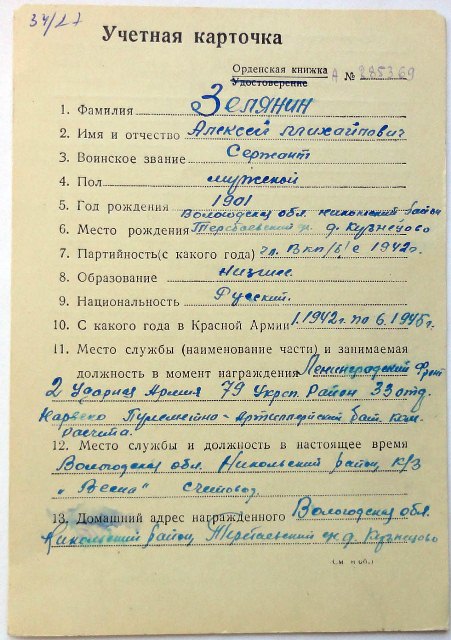 34/27
Учетная карточка
Орденская книжка А № 285369
Удостоверение
1. Фамилия Зелянин
2. Имя и отчество Алексей Михайлович
3. Воинское звание Сержант
4. Пол мужской
5. Год рождения 1901
Вологодская обл. Никольский район
6. Место рождения д. Кузнецово
7. Партийность(с какого года) чл. Вкп/б/ с 1942г.
8. Образование низшее
9. Национальность Русский.
10. С какого года в Красной Армии 1.1942г. по 6.1945г.
11. Место службы (наименование части) и занимаемая
должность в момент награждения Ленинградский фронт
2 Ударная Армия 79 Укрсп. Район 33 отд.
Пулеметно-Артиллерийский бат. ком.
расчета.
12. Место службы и должность в настоящее время
Вологодская обл. Никольский район, к/з
„Весна" счетовод
13. Домашний адрес награжденного Вологодская обл.
Никольский район, д. Кузнецово
(См. н об.)